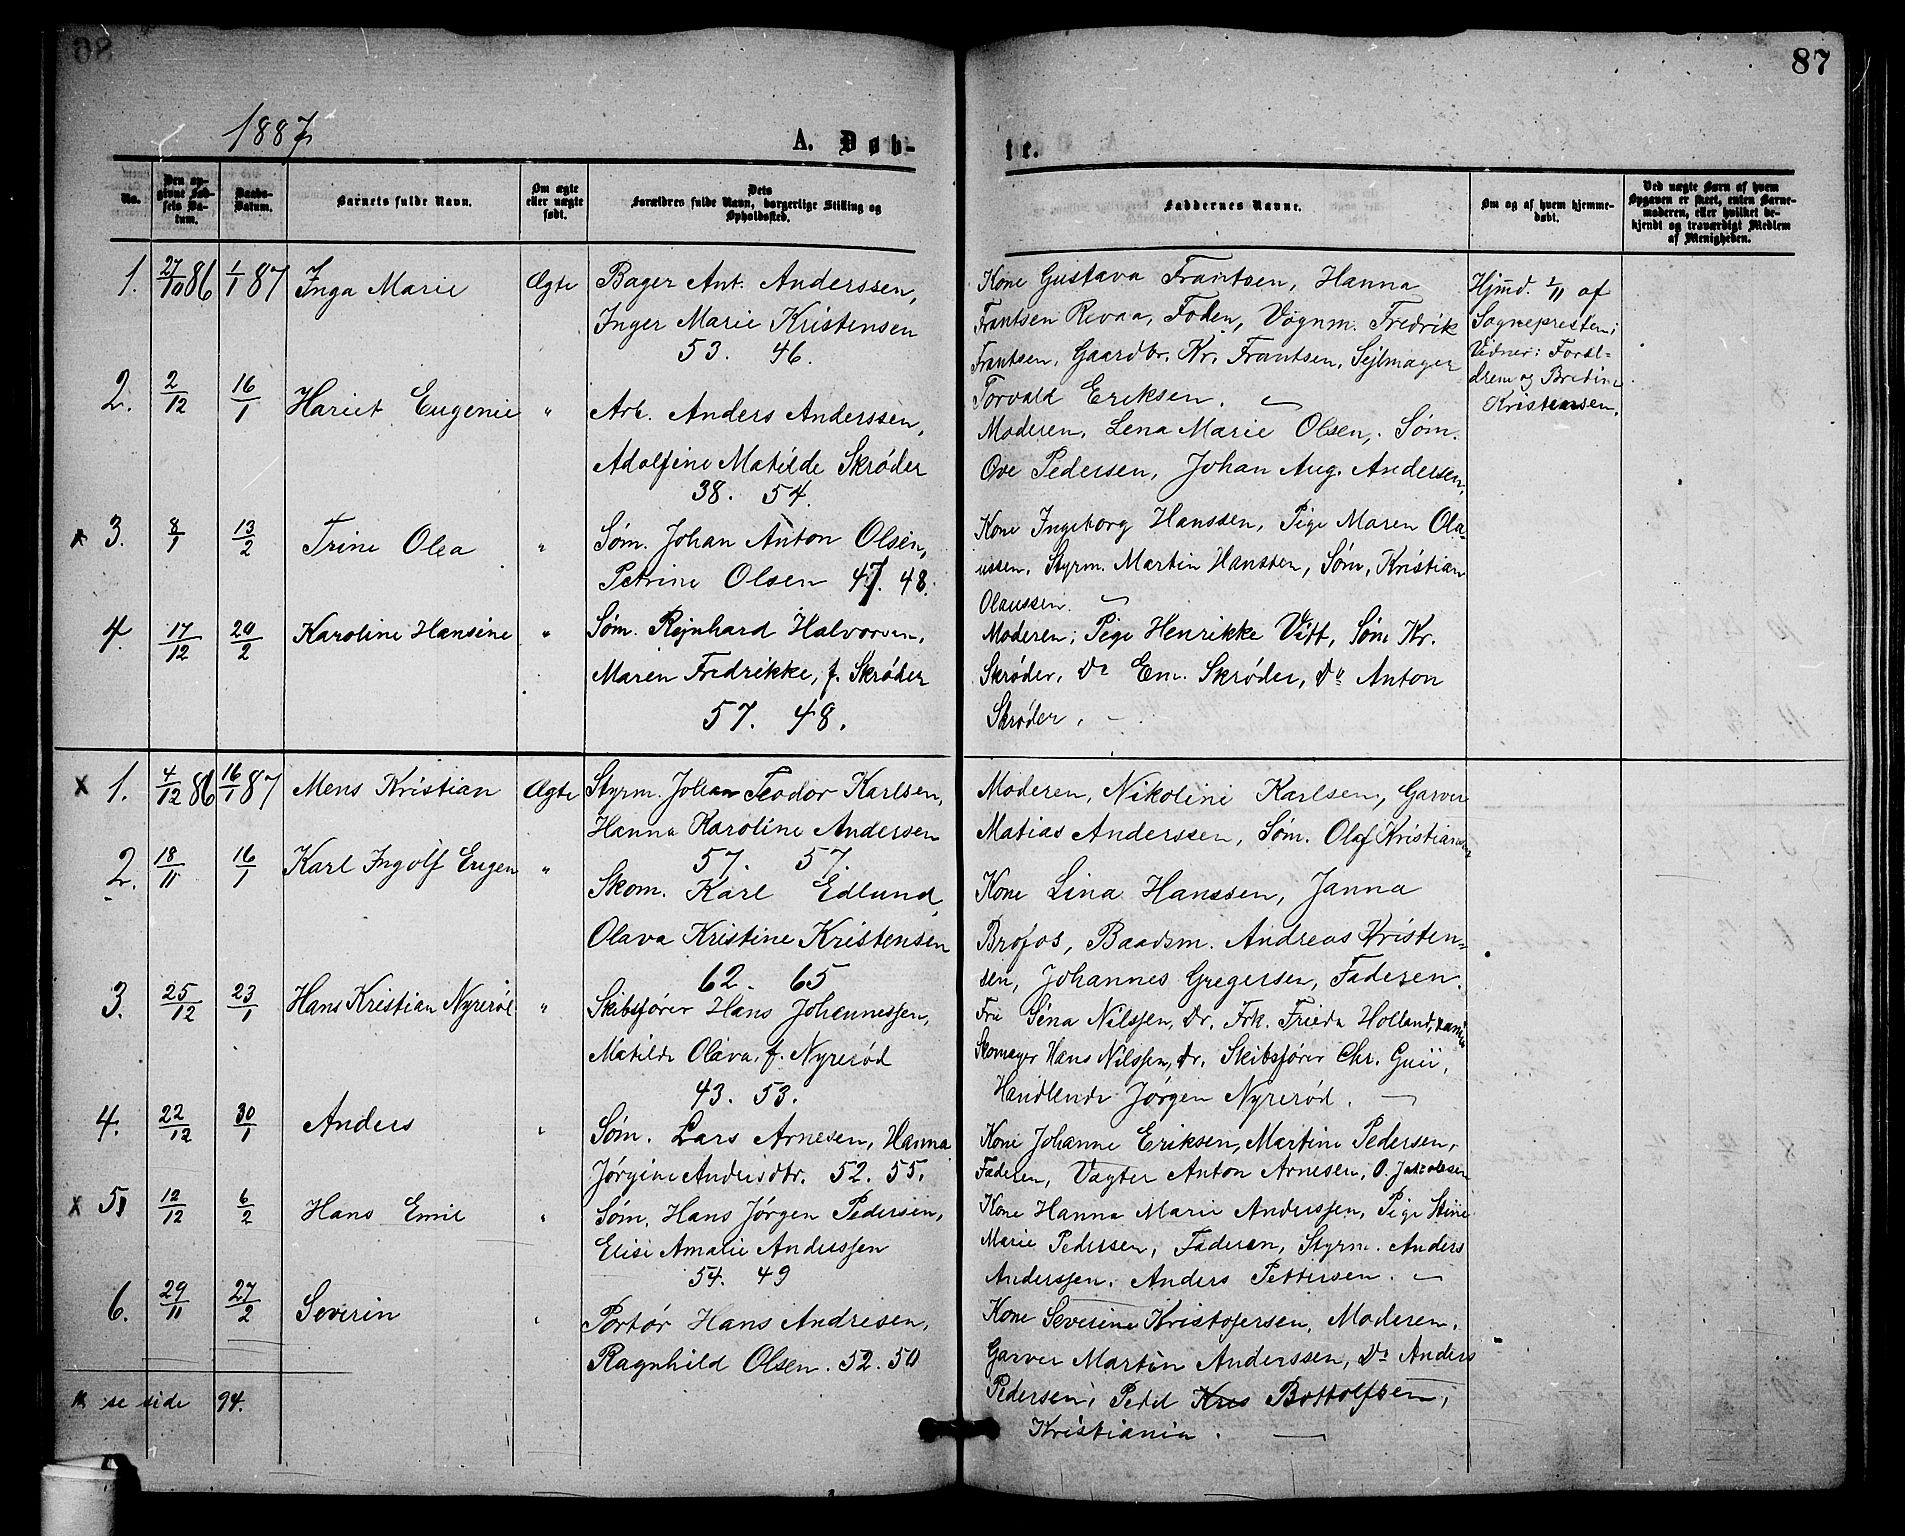 87
1887
A. Døb-
te.
No.
Den opgivne Fødsels Datum.
Daabs-Datum.
Barnets fulde Navn.
Om ægte eller uægte født.
Dets Forældres fulde Navn, borgerlige Stilling og Opholdssted.
Faddernes Navne.
Om og af hvem hjemmedøbt.
Ved uægte Børn af hvem Opgaven er skeet, enten Barnemoderen, eller hvilket bekjendt og troværdigt Medlem af Menigheden.
1. 27/10 86 1/1 87 Inga Marie Ægte Bager Ant. Anderssen,
Inger Marie Kristensen
53. 46.
Kone Gustava Frantsen, Hanna
Frantsen Revaa, Foden, Vognm. Fredrik
Frantsen, Gaardbr. Kr. Frantsen, Sejlmager
Torvald Eriksen.
Hjmd. 1/11 af
Sognepresten;
Vidner: Foræl-
drene og Bredine
Kristensen.
2. 2/12 16/1 Hariet Eugenie " Arb. Anders Anderssen,
Adolfine Matilde Skrøder
38. 54.
Moderen, Lena Marie Olsen, Søm.
Ove Pedersen, Johan Aug. Andersen,
x 3. 8/1 13/2 Trine Olea " Søm. Johan Anton Olsen,
Petrine Olsen 47. 48.
Kone Ingeborg Hanssen, Pige Maren Ola-
ussen, Styrm. Martin Hansten, Søm, Kristian
Olaussen.
4. 17/12 20/2 Karoline Hansine " Søm. Rejnhard Halvorsen,
Maren Fredrikke, f. Skrøder
57. 48.
Moderen; Pige Henrikke Vitt, Søm Kr.
Skrøder, Do Em. Skrøder, Do Anton
Skrøder.
x 1. 4/12 86 16/1 87 Mens Kristian Ægte Styrm. Johan Teodor Karlsen,
Hanna Karoline Andersen
57. 57.
Moderen, Nikoline Karlsen, Garver
Matias Anderssen, Søm. Olaf Kristiansen
2. 18/11 16/1 Karl Ingolf Eugen " Skom. Karl Edlund,
Olava Kristine Kristensen
62. 65
Kone Lina Hanssen, Janna
Brofos, Baadsm. Andreas Kristen-
sen, Johannes Gregersen, Faderen.
3. 25/12 23/1 Hans Kristian Nyrerød " Skibsfører Hans Johannessen,
Matilde Olava f. Nyrerød
43. 53.
Fru Sina Nilssen, Dr. Frk. Frieda Holland,
Skomager Hans Nilssen, Dr. Skibsfører Chr.
Handlende Jørgen Nyrerød.
4. 22/12 30/1 Anders " Søm. Lars Arnesen, Hanna
Jørgine Andersdtr. 52. 55.
Kone Johanne Eriksen, Martine Pedersen,
Faderen, Vagter Anton Arnesen, O. Jakobsen
x 5. 12/12 6/2 Hans Emil " Søm. Hans Jørgen Pedersen,
Elise Amalie Anderssen
54. 49
Kone Hanna Marie Anderssen, Pige Stine
Marie Pedersen, Faderen, Styrm. Anders
Anderssen, Anders Pettersen.
6. 29/11 27/2 Severin " Portør Hans Andresen,
Ragnhild Olsen. 52. 50
Kone Severine Kristofersen, Moderen,
Garver Martin Anderssen, Do Anders
Pedersen, Petel Kris Bottolfsen,
Kristiania.
x se side 94.